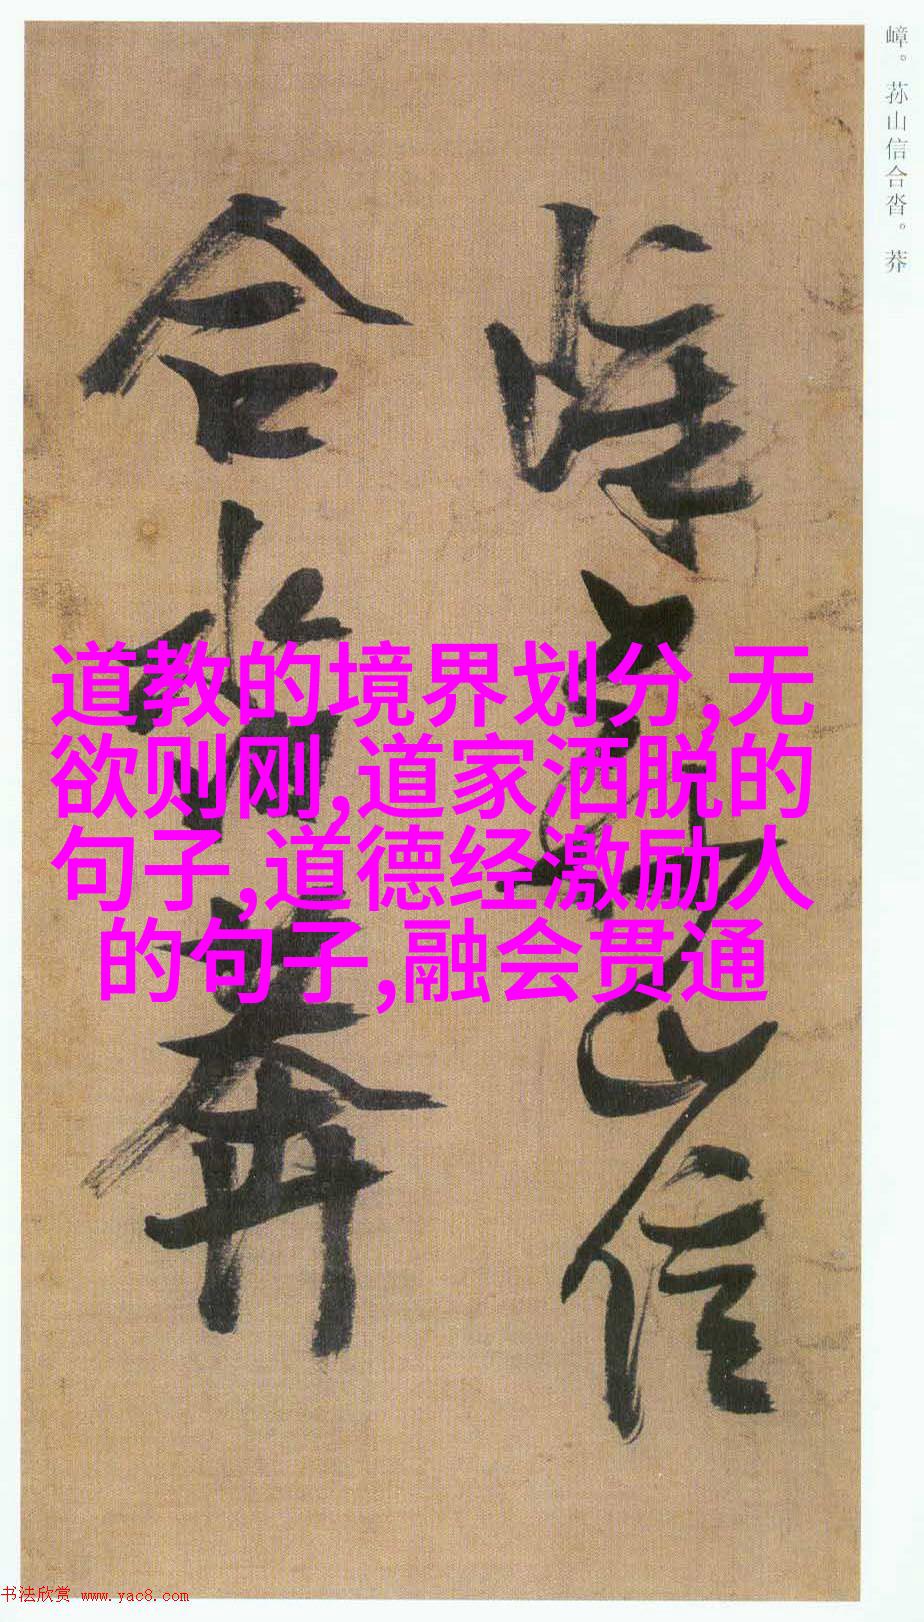 嶂。荪山信合沓。莽
嶂荪山信
合沓莽
道教的境界划分,无
欲则刚,道家洒脱的
句子,道德经激励人
的句子,融会贯通
书法欣赏 www.yac8.com